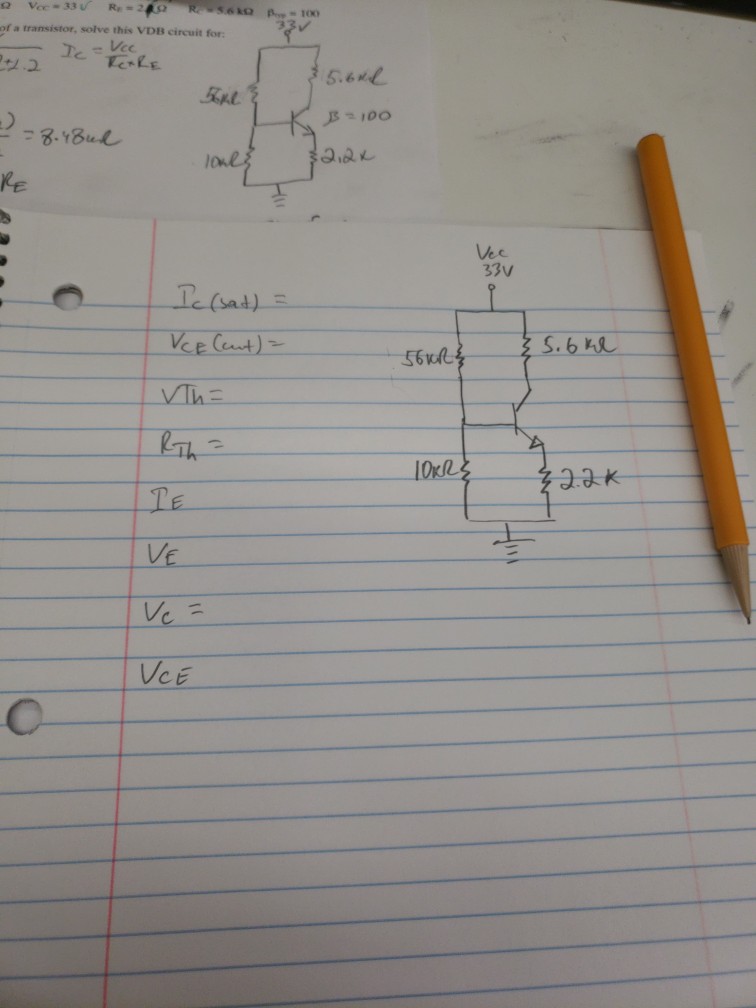 Ω VCC = 33 V RE = 2 Ω RC = 5.6 kΩ = 100
of a transistor, solve this VDB circuit for:
33V
IC = VCC
RC+RE
2+1.2
5.6kΩ
56kΩ
β = 100
= 8.48
10kΩ
2.2k
RE
Vcc
33V
IC (sat) =
VCE (cut) =
56kΩ
5.6 kΩ
VTh =
RTh =
10kΩ
2.2K
IE
VE
VC =
VCE